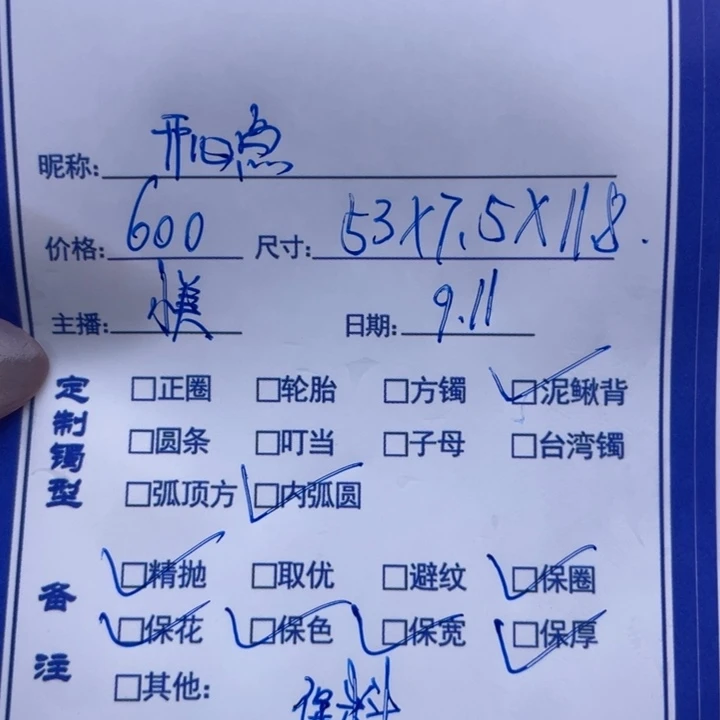 昵称:
价格: 600 尺寸: 53X7.5X11.8.
主播: 小美 日期: 9.11
定制镯型
□正圈 □轮胎 □方镯 ☑泥鳅背
□圆条 □叮当 □子母 □台湾镯
□弧顶方 ☑内弧圆
备注
☑精抛 □取优 □避纹 ☑保圈
☑保花 ☑保色 ☑保宽 ☑保厚
□其他: